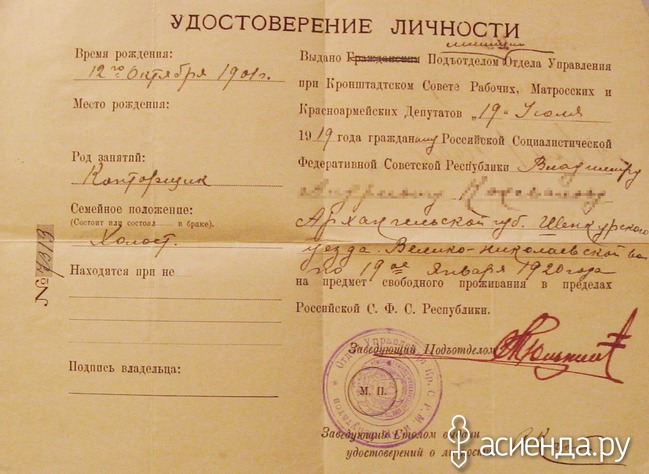 УДОСТОВЕРЕНИЕ ЛИЧНОСТИ
Время рождения:
12го Октября 1901г.
Место рождения:
Род занятий:
Конторщик
Семейное положение:
(Состоит или состоял — в браке).
Холост.
Находятся при не
Подпись владельца:
№ 7313
милиции
Выдано Гражданским Подъотделом Отдела Управления
при Кронштадтском Совете Рабочих, Матросских и
Красноармейских Депутатов „19" Июля
1919 года гражданину Российской Социалистической
Федеративной Советской Республики Владимиру
Архангельской губ. Шенкурского
уезда. Велико-Николаевской
по 19ое Января 1920 года
на предмет свободного проживания в пределах
Российской С. Ф. С. Республики.
Заведующий Подъотделом
М. П.
Заведующий Столом выдачи
удостоверений о личнос
асиенда.ру